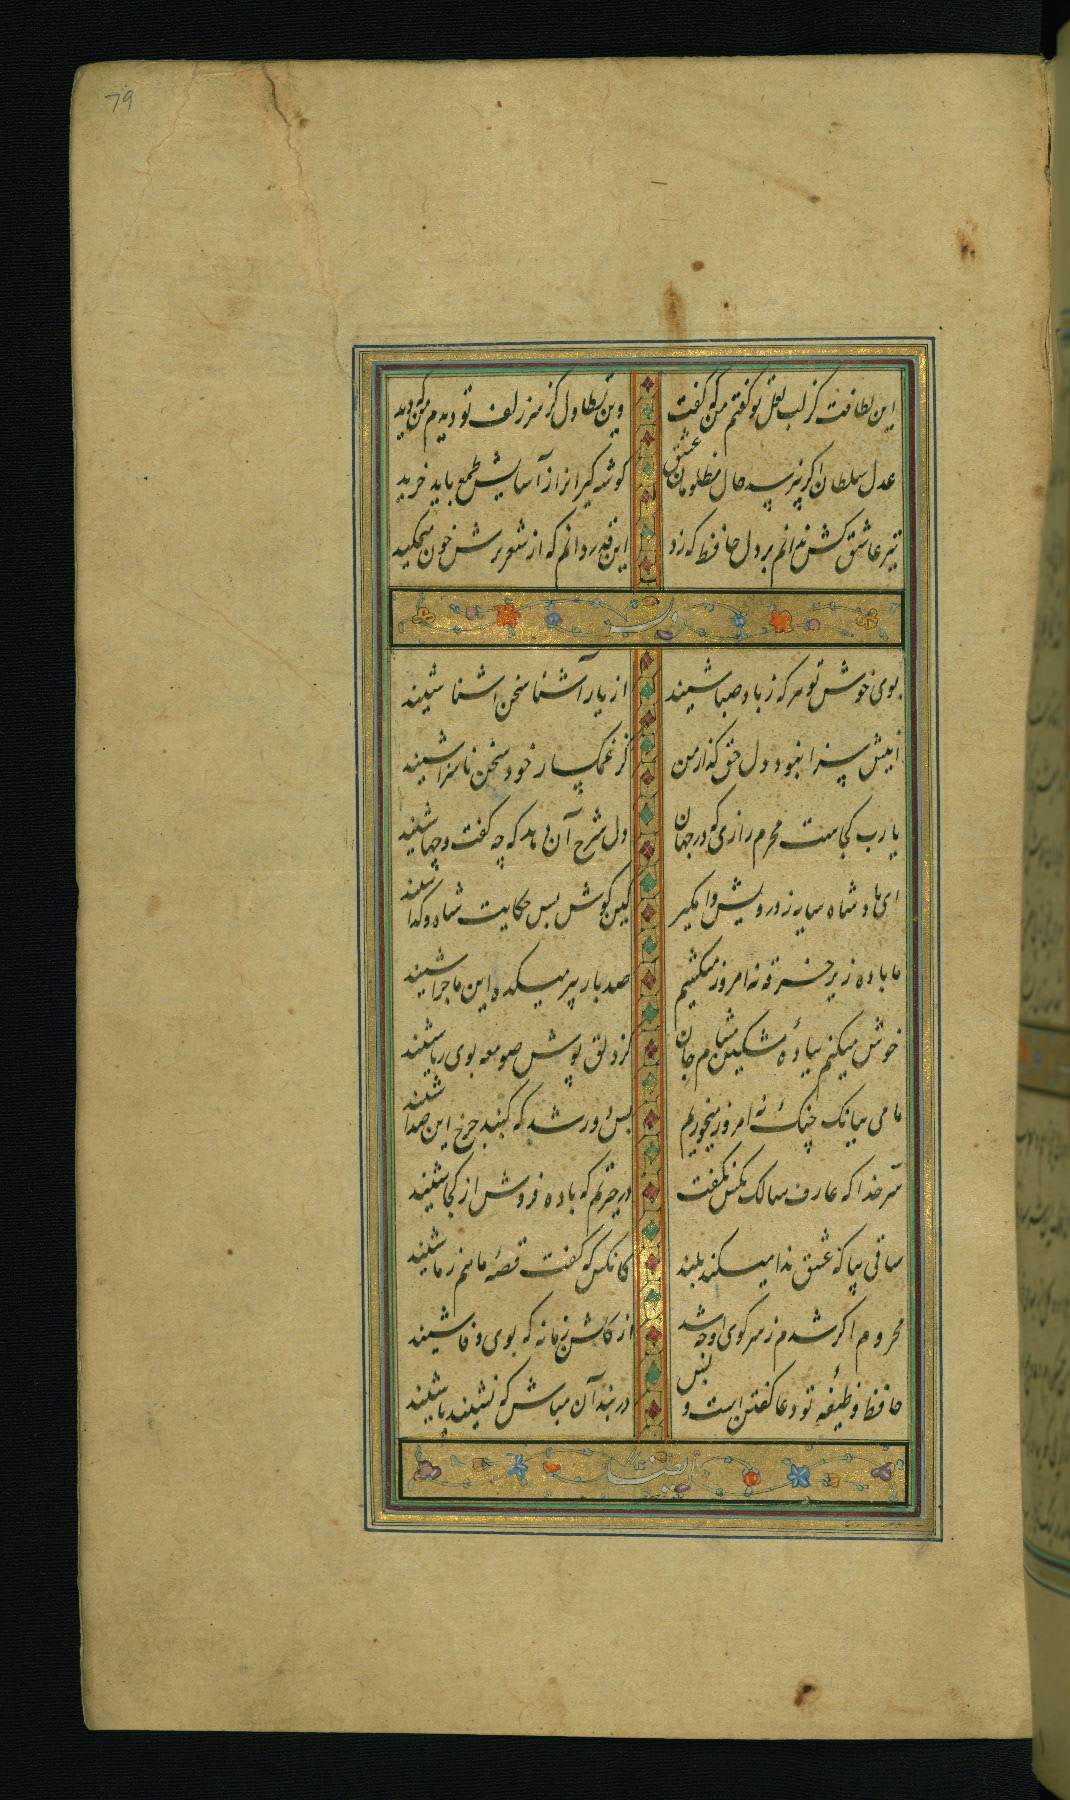 79
این لطافت کز لب لعل تو گفتم من که گفت وین تطاول کز سر زلف تو دیدم من که دید
عدل سلطان اگر نپرسد حال مظلومان عشق گوشه گیرانرا ز آسایش طمع باید برید
تیر عاشق کش ندانم بر دل حافظ که زد این قدر دانم که از شعر ترش خون میچکید
بوی خوش تو هر که ز باد صبا شنید از یار آشنا سخن آشنا شنید
اینش سزا نبود دل حق گذار من کز غمگسار خود سخن ناسزا شنید
یا رب کجاست محرم رازی که در جهان دل شرح آن دهد که چه گفت و چها شنید
ای شاه سایه ز درویش وا مگیر کین گوش بس حکایت شاه و گدا شنید
ما باده زیر خرقه نه امروز میکشیم صد بار پیر میکده این ماجرا شنید
خوش میکنم بباده مشکین مشام جان کز دلق پوش صومعه بوی ریا شنید
ما می ببانگ چنگ نه امروز میخوریم بس دور شد که گنبد چرخ این صدا شنید
سر خدا که عارف سالک بکس نگفت در حیرتم که باده فروش از کجا شنید
ساقی بیا که عشق ندا میکند بلند کانکس که گفت قصهٔ ما هم ز ما شنید
محروم اگر شدم ز سر کوی او چه شد از گلشن زمانه که بوی وفا شنید
حافظ وظیفهٔ تو دعا گفتن است و بس در بند آن مباش که نشنید یا شنید
ایضا